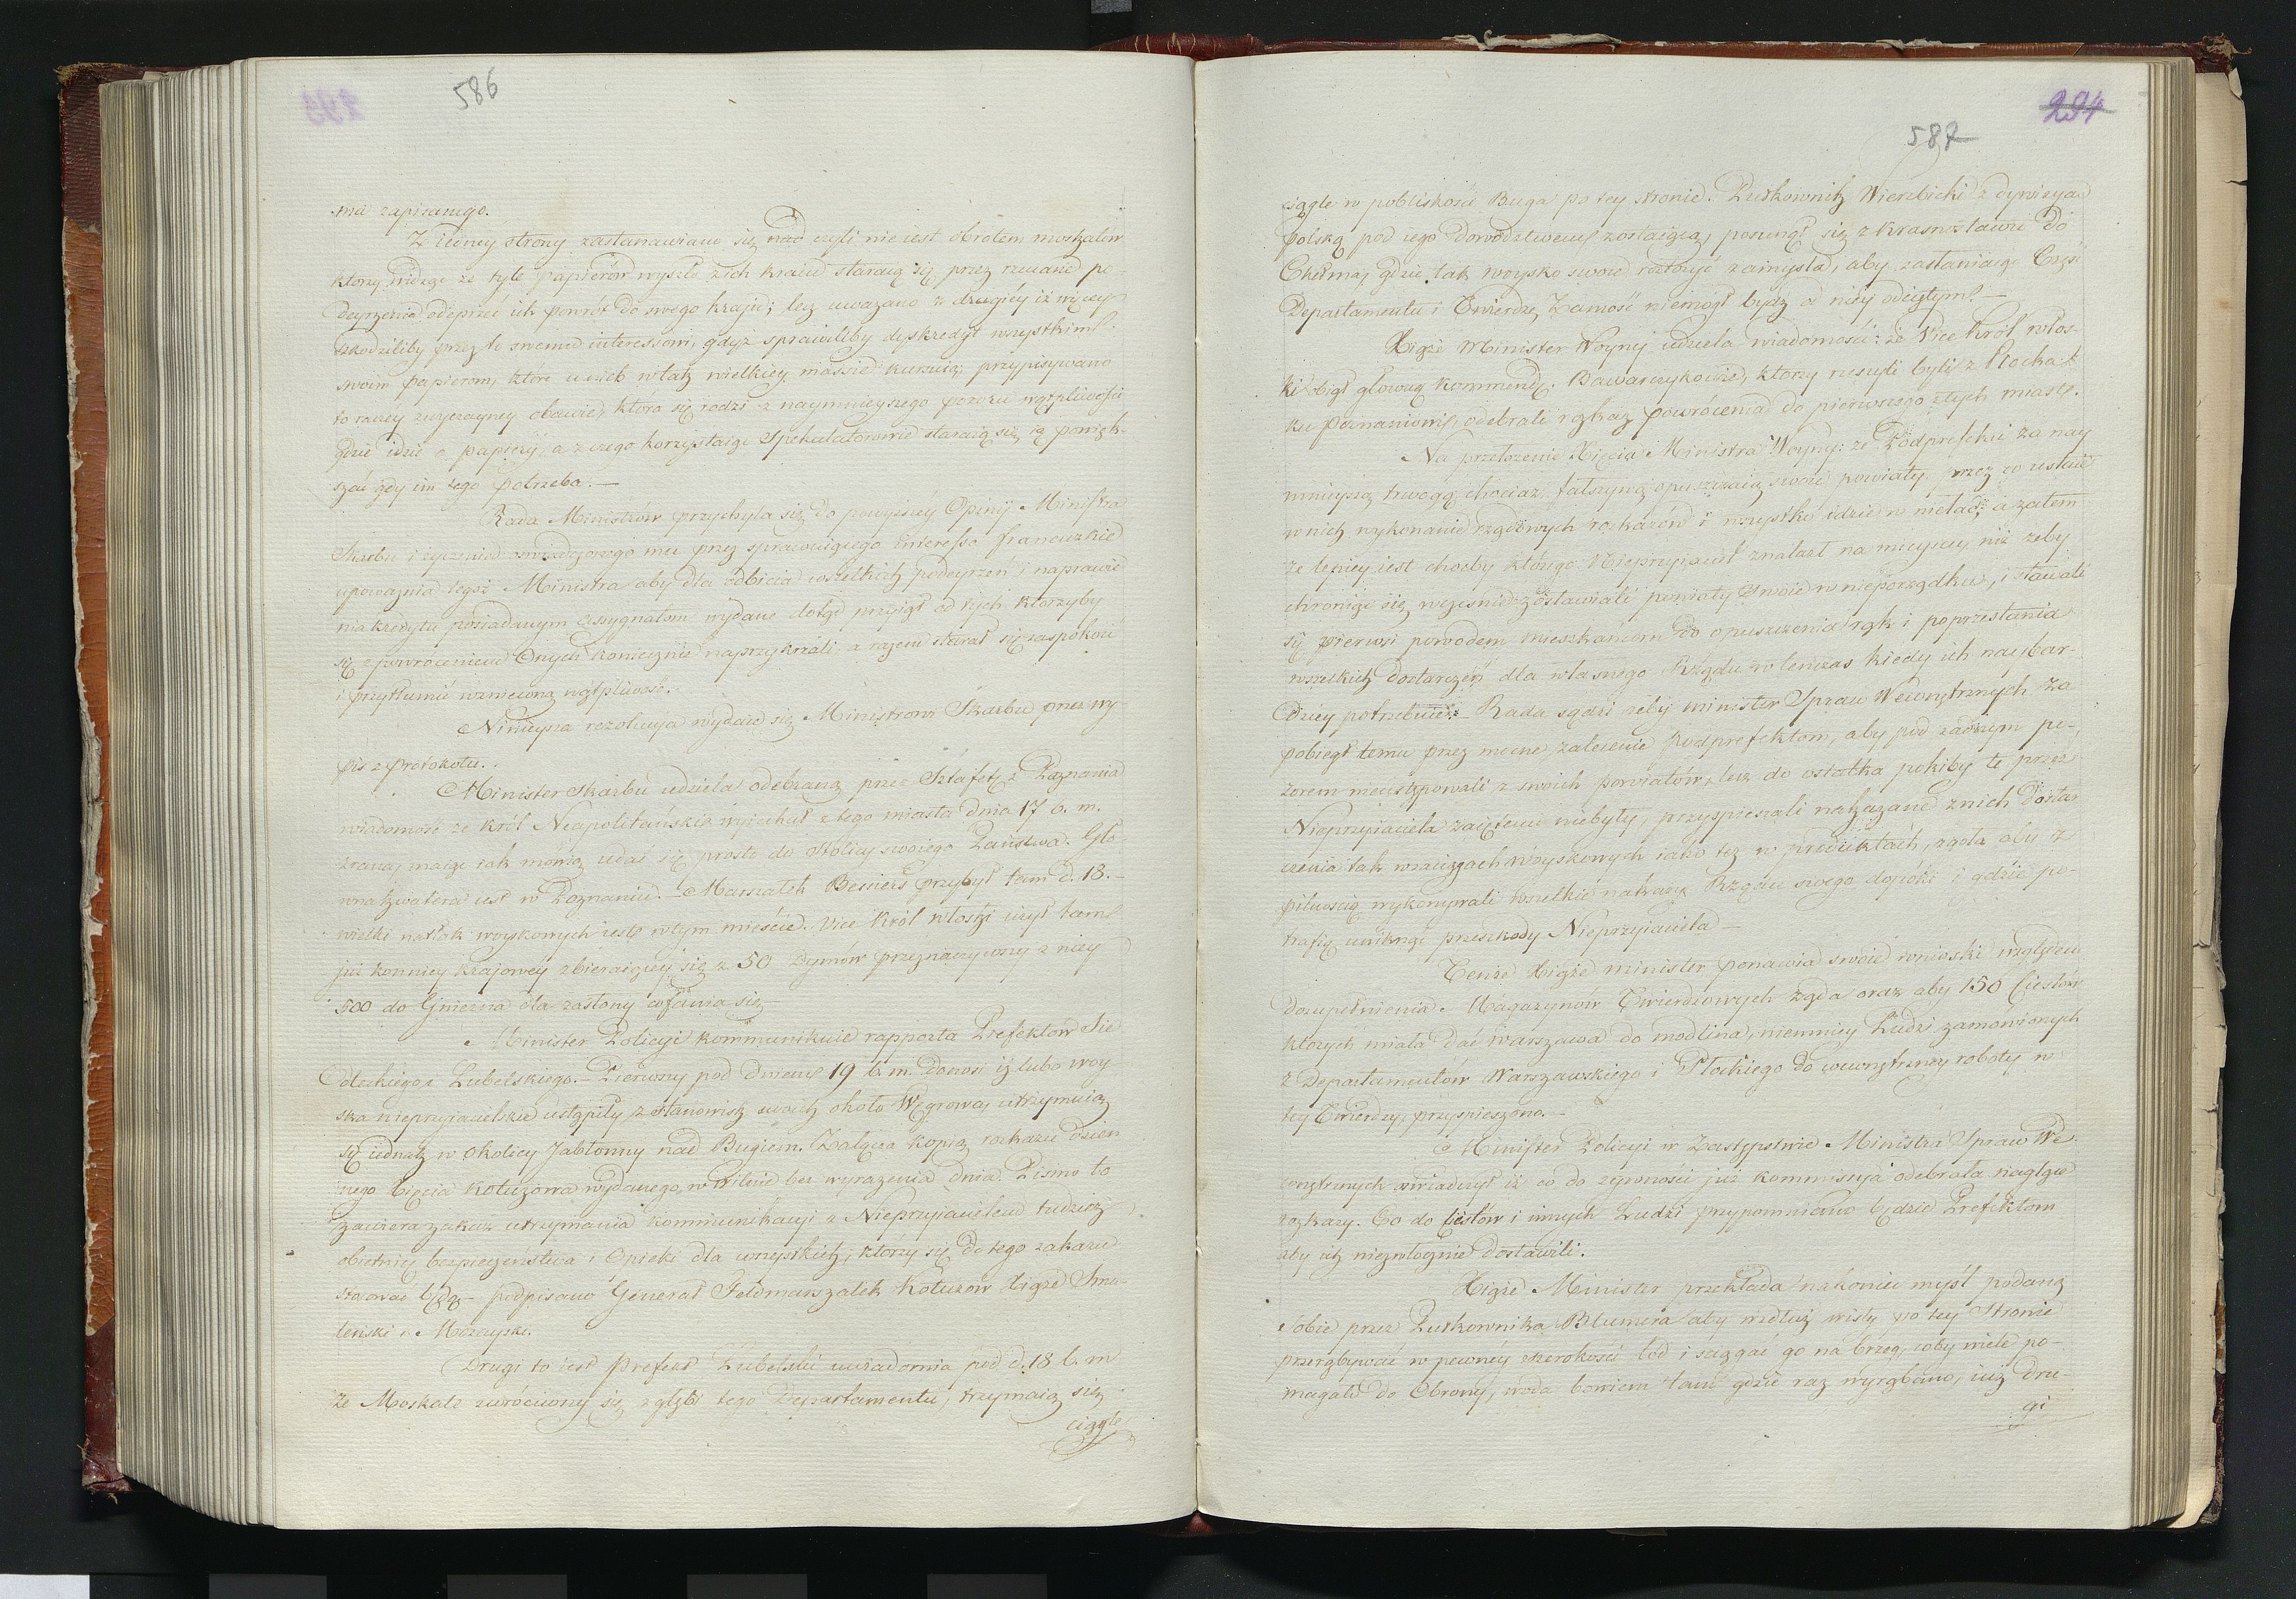 586
ma zapisanego.
Z iedney strony zastanawiano się nad czyli nie iest obrotem moskalów
ktorzy widząc że tyle papierów wyszło z ich kraiu staraią się przez rzucane po-
deyrzenie odeprzeć ich powrót do swego kraju; lecz uważano z drugiéy iż więcey
szkodziliby przez to swemu interessowi, gdyż sprawiliby dyskredyt wszystkim
swoim papierom, które u nich w tak wielkiey massie kursuią; przypisywano
to raczey zwyczayney obawie, ktora się rodzi z naymnieyszego pozoru wątpliwości
gdzie idzie o papiery, a z czego korzystaiąc Spekulatorowie staraią się ią powięk-
szać gdy im tego potrzeba.—
Rada Ministrów przychyla się do powyższéy Opinij Ministra
Skarbu i życzenia oswiadczonego mu przez sprawuiącego Interessa francuzkie
upoważnia tegoż Ministra aby dla odbicia wszelkich podeyrzeń i naprawie
nia kredytu posiadanym assygnatom wydane dotąd przyiął od tych ktorzyby
się z powróceniem Onych koniecznie naprzykrzali a razem starał się zaspokoić
i przytłumić wznieconą wątpliwość.
Ninieysza rezolucya wydaie się Ministrowi Skarbu przez wy-
pis z Protokołu.
Minister Skarbu udziela odebraną przez Sztafetę z Poznania
wiadomość że Król Neapolitański wyiechał z tego miasta dnia 17 b. m.
zrana, maiąc iak mowią udać się prosto do Stolicy swoiego Państwa. Głó
wna kwatera iest w Poznaniu.— Marszałek Bessiers przybył tam d. 18.—
wielki natłok woyskowych iest w tym mieście. Vice Król Włoski użył tam
już konnicy krajowéy zbieraiącey się z 50 dymów przeznaczywszy z niey
500 do Gniezna dla zasłony cofania się—
Minister Policyi kommunikuie rapporta Prefektow Sie
dleckiego i Lubelskiego.— Pierwszy pod dniem 19 b. m. donosi iż lubo woy
ska nieprzyiacielskie ustąpiły z stanowisk swoich około Węgrowa, utrzymuią
się iednak w Okolicy Jabłonny nad Bugiem. Załącza kopią rozkazu dzien
nego Xięcia Kotuzowa wydanego, w Wilnie bez wyrażenia dnia. Pismo to
zawiera zakaz utrzymania kommunikacyi z Nieprzyiacielem tudzież
obietnicę bezpieczeństwa i Opieki dla wszystkich, którzy się do tego zakazu
stosować będą— podpisano Generał Feldmarszałek Kotuzow Xiąże Smo-
leński i Mozayski.
Drugi to iest Prefekt Lubelski uwiadomia pod d. 18 b. m
że Moskale zwróciwszy się z głębi tego Departamentu, trzymaią się
ciągle
294
587
ciągle w pobliskości Buga po tey stronie. Pułkownik Wierzbicki z dywizyą
polską pod iego dowodztwem zostaiącą, posunął się z Krasnegostawu do
Chełma, gdzie tak woysko swoie rozłożyć zamysla, aby zasłaniaiąc Część
Departamentu i Twierdzę Zamość niemógł bydz od niéy odciętym.—
Xiąże Minister Woyny udziela wiadomość: że Vice Król Włos-
ki obiął główną kommendę. Bawarczykowie, ktorzy ruszyli byli z Płocka
ku Poznaniowi, odebrali rozkaz powrócenia do pierwszego z tych miast.
Na przełożenie Xięcia Ministra Woyny: że Podprefekci za nay
mnieyszą trwogą chociaż fałszywą opuszczaią swoie powiaty przez co ustaie
w nich wykonanie rządowych rozkazów i wszystko idzie w nieład, a zatem
że lepiey iest choćby którego Nieprzyiaciel znalazł na mieyscu, niż żeby
chroniąc się wczesnie zostawiali powiaty swoie w nieporządku, i stawali
się pierwsi powodem mieszkańcom do opuszczenia rąk i poprzestania
wszelkich dostarczeń dla własnego Rządu w tenczas kiedy ich naybar-
dziey potrzebuie— Rada sądzi żeby Minister Spraw Wewnętrznych za
pobiegł temu przez mocne zalecenie podprefektom, aby pod żadnym po-
zorem nieustępowali z swoich powiatów, lecz do ostatka pokiby te przez
Nieprzyiaciela zaiętemi niebyły, przyspieszali nakazane z nich dostar
czenia tak w zaciągach woyskowych iako też w produktach, zgoła aby z
pilnością wykonywali wszelkie nakazy Rządu swego dopóki i gdzie po-
trafią uniknąć przeszkody Nieprzyiaciela—
Tenże Xiąże Minister ponawia swoie wnioski względem
dozupełnienia Magazynów Twierdzowych żąda oraz aby 150 Cieslów
ktorych miała dać Warszawa do Modlina, niemniey Ludzi zamówionych
z Departamentów Warszawskiego i Płockiego do wewnętrzney roboty w
tey Twierdzy, przyspieszono.—
Minister Policyi w Zastępstwie Ministra Spraw We-
wnętrznych oswiadczył iż co do żywności już kommissya odebrała naglące
rozkazy. Co do Ciesłow i innych Ludzi przypomniano będzie Prefektom
aby ich niezwłocznie dostawili.
Xiąże Minister przekłada nakoniec myśl podaną
Sobie przez Pułkownika Blumera aby wzdłuż wisły po tey Stronie
przerąbywać w pewnéy szerokości lód i sciągać go na brzeg, coby wiele po-
magało do Obrony, woda bowiem tam gdzie raz wyrąbano, iuż dru-
gi